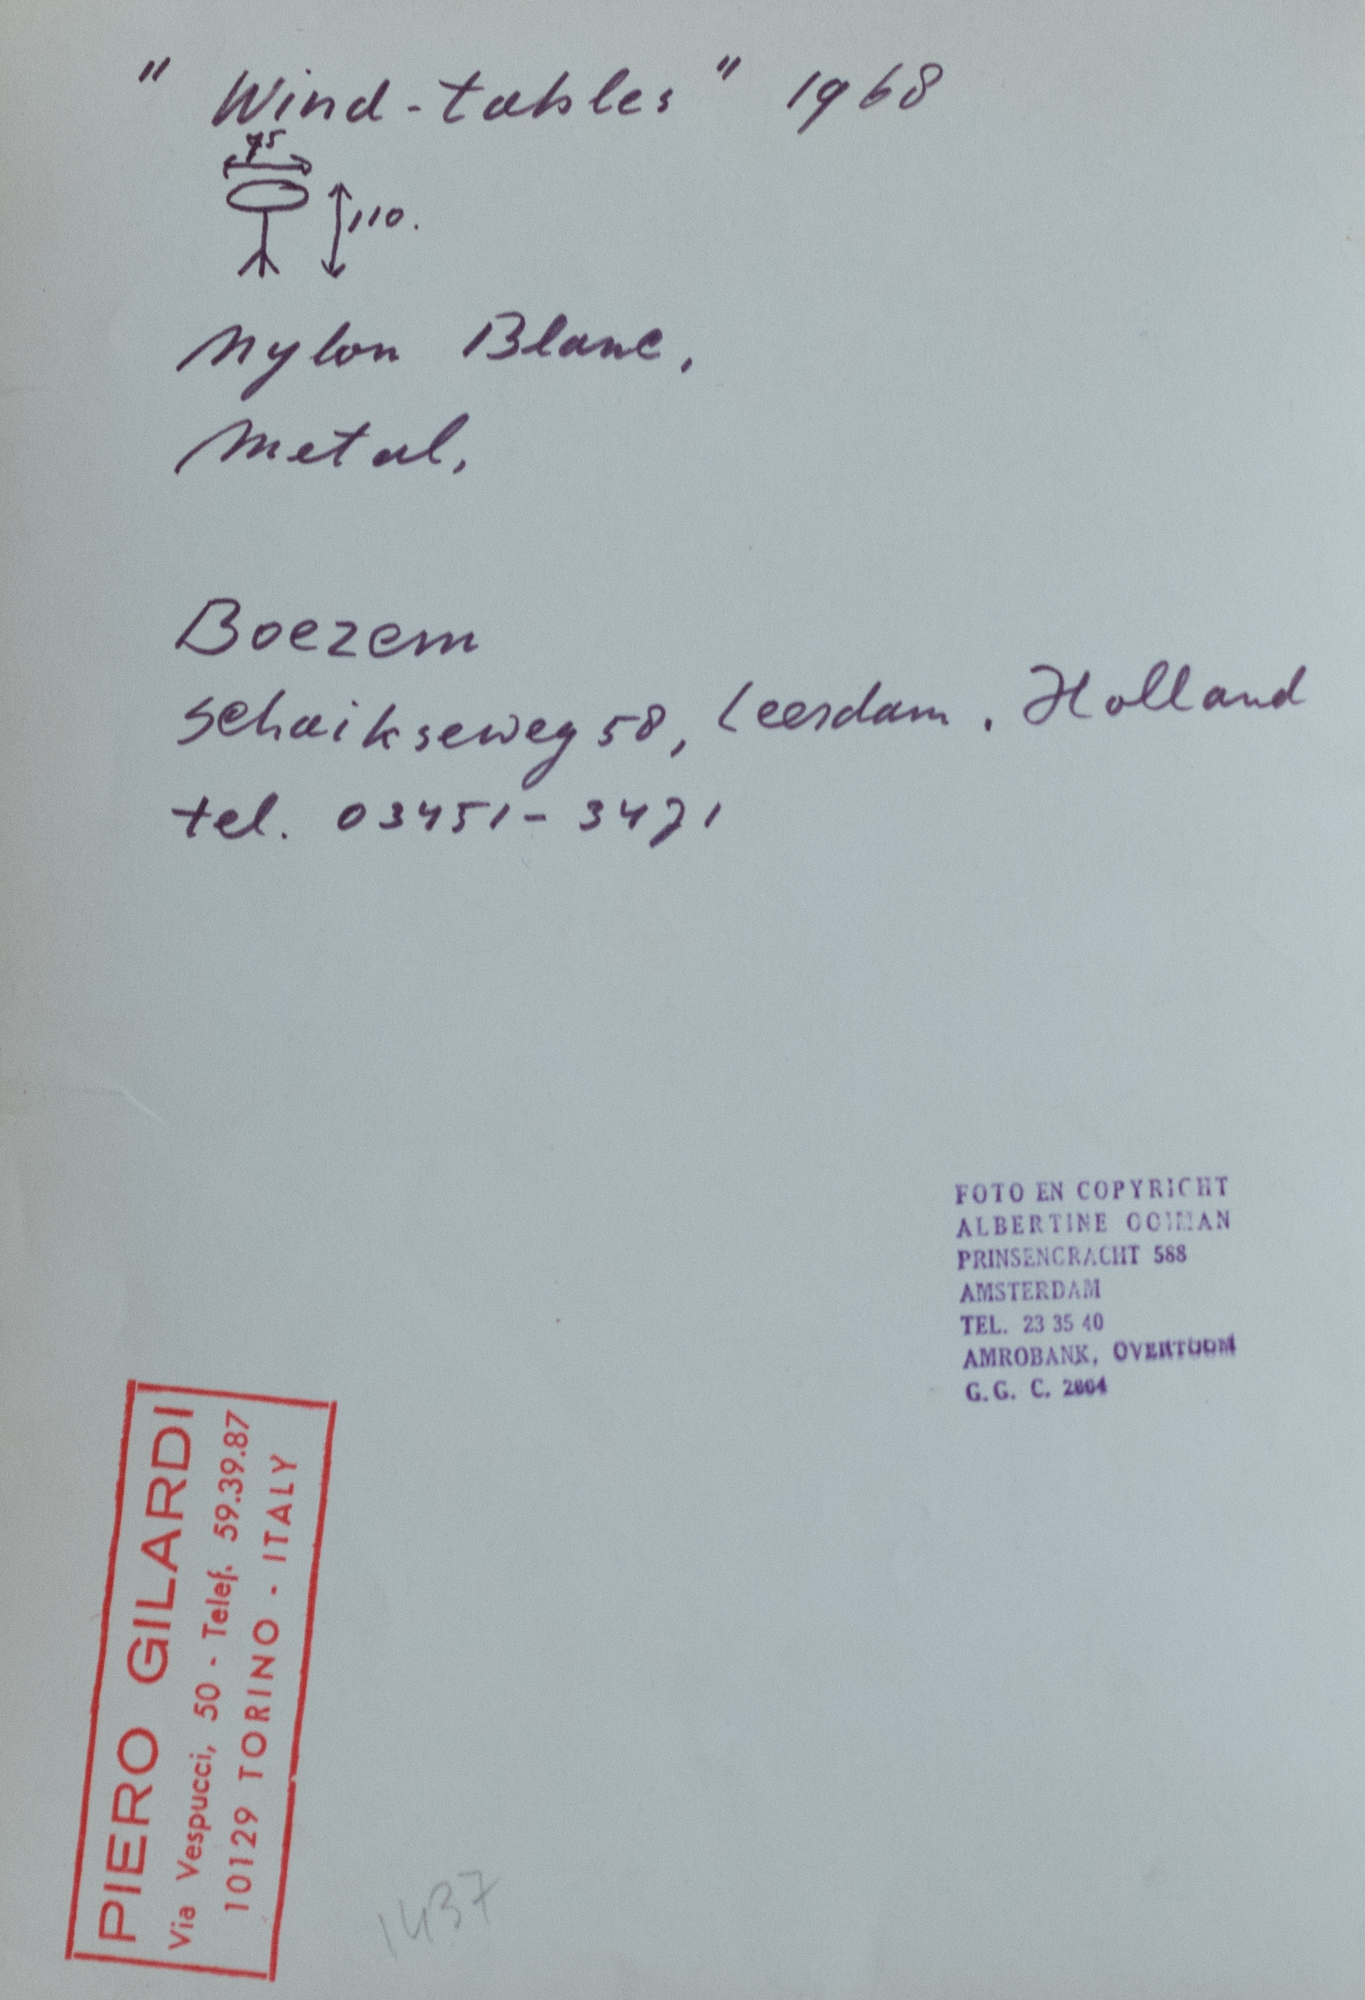 " Wind-tables " 1968
75
110.
Nylon Blanc,
Metal,
Boezem
Schaikseweg 58, Leerdam. Holland
tel. 03451-3471
FOTO EN COPYRIGHT
ALBERTINE OOIMAN
PRINSENGRACHT 588
AMSTERDAM
TEL. 23 35 40
AMROBANK, OVERTOOM
G.G. C. 2004
PIERO GILARDI
Via Vespucci, 50 - Telef. 59.39.87
10129 TORINO - ITALY
1437